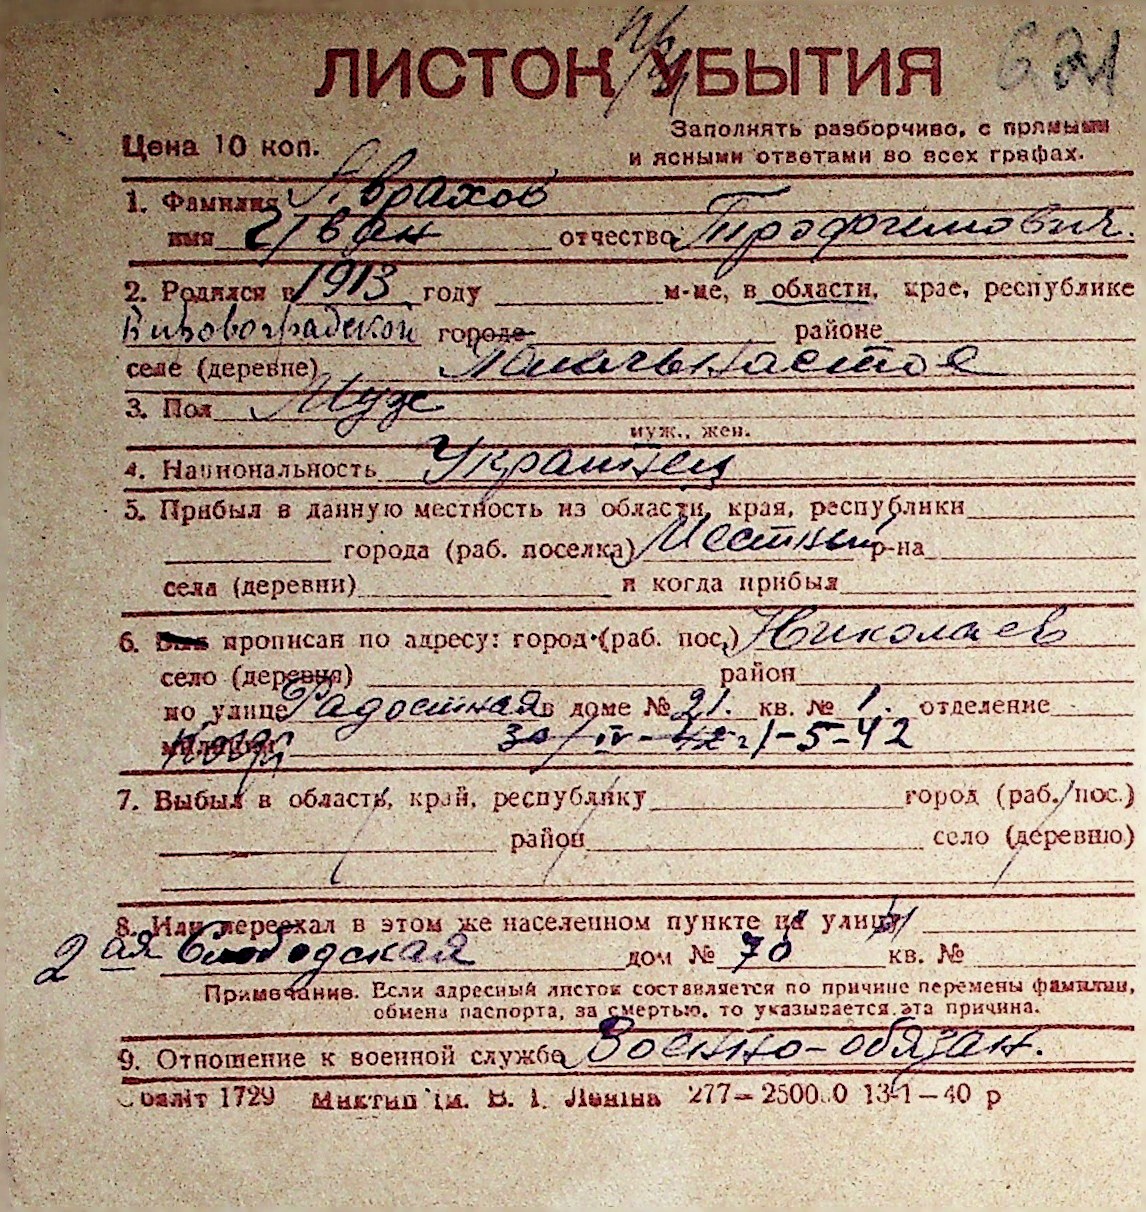 ЛИСТОК УБЫТИЯ 621
Цена 10 коп.
Заполнять разборчиво, с прямыми
и ясными ответами во всех графах.
1. Фамилия Аврахов
имя Иван отчество Трофимович.
2. Родился в 1913 году м-це, в области, крае, республике
Кировоградской городе районе
селе (деревне)
3. Пол Муж
муж., жен.
4. Национальность Украинец
5. Прибыл в данную местность из области, края, республики
города (раб. поселка) Местный р-на
села (деревни) и когда прибыл
6. Был прописан по адресу: город (раб. пос.) Николаев
село (деревня) район
по улице Радостная в доме № 21. кв. № 1. отделение
милиции 1-5-42
7. Выбыл в область, край, республику город (раб. пос.)
район село (деревню)
8. Или переехал в этом же населенном пункте на улицу
2 ая Слободская дом № 70 кв. №
Примечание. Если адресный листок составляется по причине перемены фамилии,
обмена паспорта, за смертью, то указывается эта причина.
9. Отношение к военной службе Военно-обязан.
1729 Миктип ім. В. І. Леніна 277— 13-1—40 р